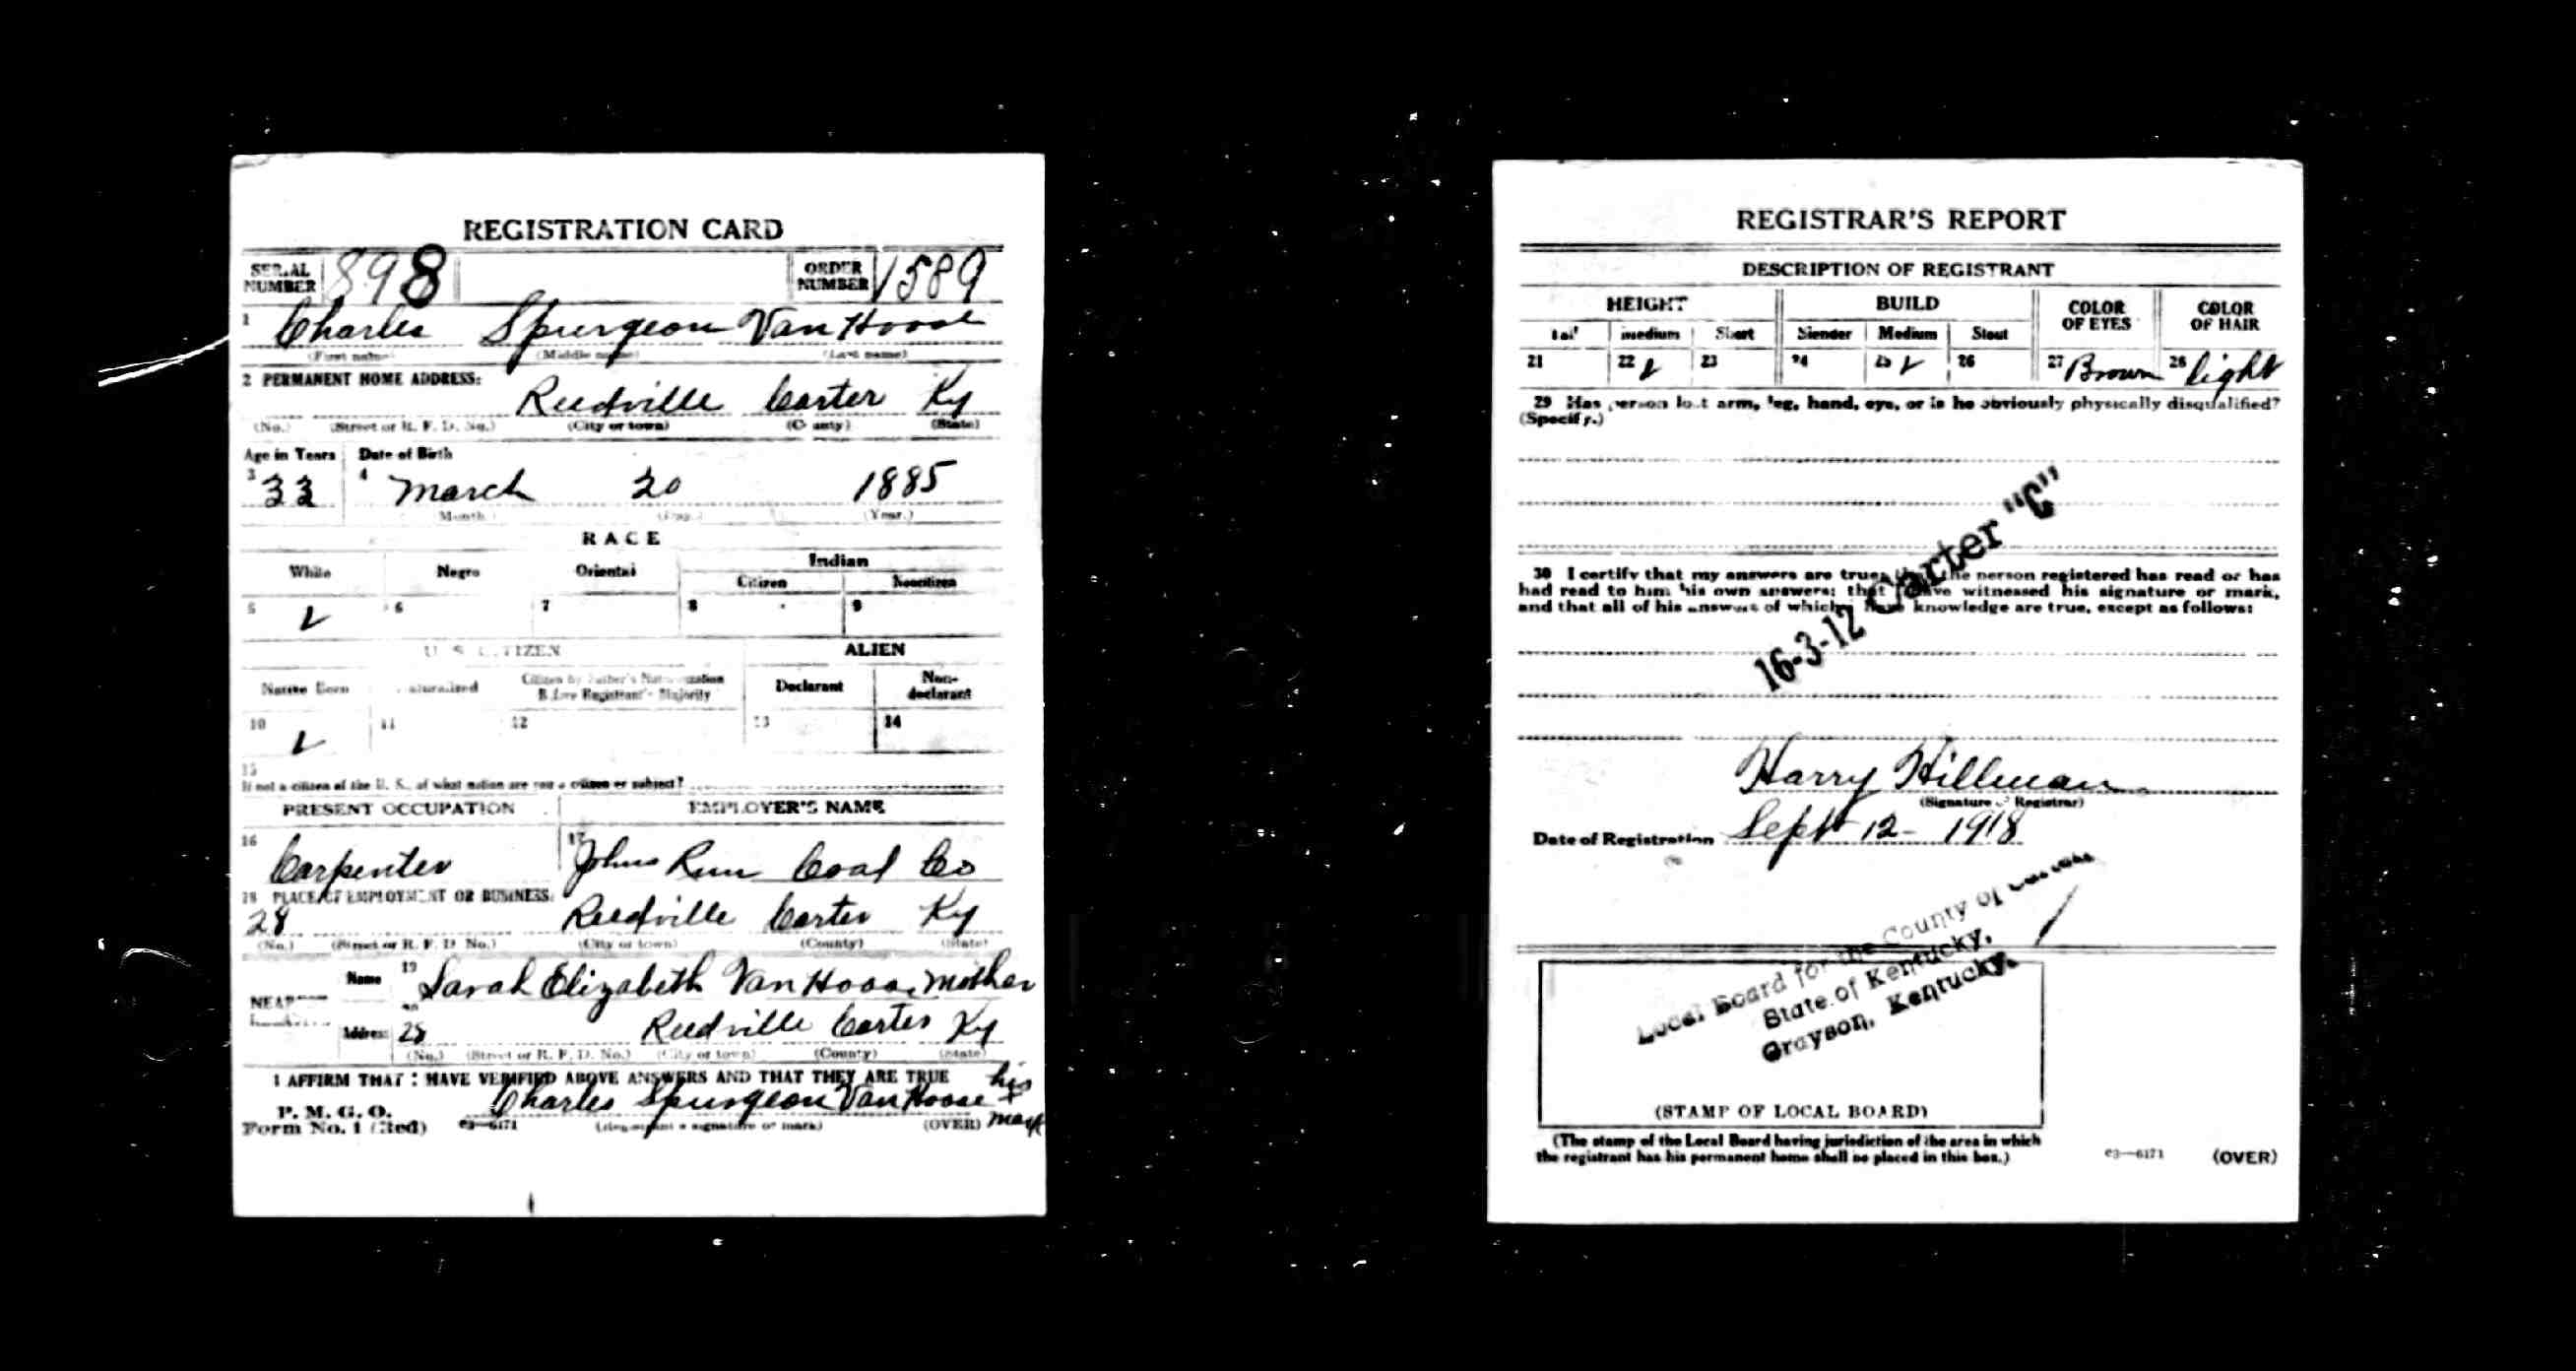 REGISTRATION CARD
SERIAL NUMBER 898 ORDER NUMBER 1589
1 Charles Spurgeon Van Hoose
(First name) (Middle name) (Last name)
2 PERMANENT HOME ADDRESS:
Reedville Carter Ky
(No.) (Street or R. F. D. No.) (City or town) (County) (State)
Age in Years Date of Birth
3 33 4 March 20 1885
(Month.) (Day.) (Year.)
RACE
White Negro Oriental Indian
Citizen Noncitizen
5 6 7 8 9
U. S. CITIZEN ALIEN
Native Born Naturalized Citizen by Father's Naturalization Before Registrant's Majority Declarant Non-declarant
10 11 12 13 14
15
If not a citizen of the U. S., of what nation are you a citizen or subject?
PRESENT OCCUPATION EMPLOYER'S NAME
16 Carpenter 17 Johns Run Coal Co
18 PLACE OF EMPLOYMENT OR BUSINESS:
28 Reedville Carter Ky
(No.) (Street or R. F. D. No.) (City or town) (County) (State)
Name 19 Sarah Elizabeth Van Hoose, mother
NEAREST
Address 28 Reedville Carter Ky
(No.) (Street or R. F. D. No.) (City or town) (County) (State)
I AFFIRM THAT I HAVE VERIFIED ABOVE ANSWERS AND THAT THEY ARE TRUE
P. M. G. O.
Form No. 1 (Red) Charles Spurgeon Van Hoose his x mark
c3—6171 (Registrant's signature or mark) (OVER)
REGISTRAR'S REPORT
DESCRIPTION OF REGISTRANT
HEIGHT BUILD COLOR OF EYES COLOR OF HAIR
Tall medium Short Slender Medium Stout
21 22 23 24 25 26 27 Brown 28 light
29 Has person lost arm, leg, hand, eye, or is he obviously physically disqualified?
(Specify.)
16-3-12 Carter "C"
30 I certify that my answers are true; that the person registered has read or has
had read to him his own answers; that I have witnessed his signature or mark,
and that all of his answers of which I have knowledge are true, except as follows:
Harry Hillman
(Signature of Registrar)
Date of Registration Sept 12- 1918
Local Board for the County of Carter
State of Kentucky,
Grayson, Kentucky.
(STAMP OF LOCAL BOARD)
(The stamp of the Local Board having jurisdiction of the area in which
the registrant has his permanent home shall be placed in this box.)
c3—6171 (OVER)